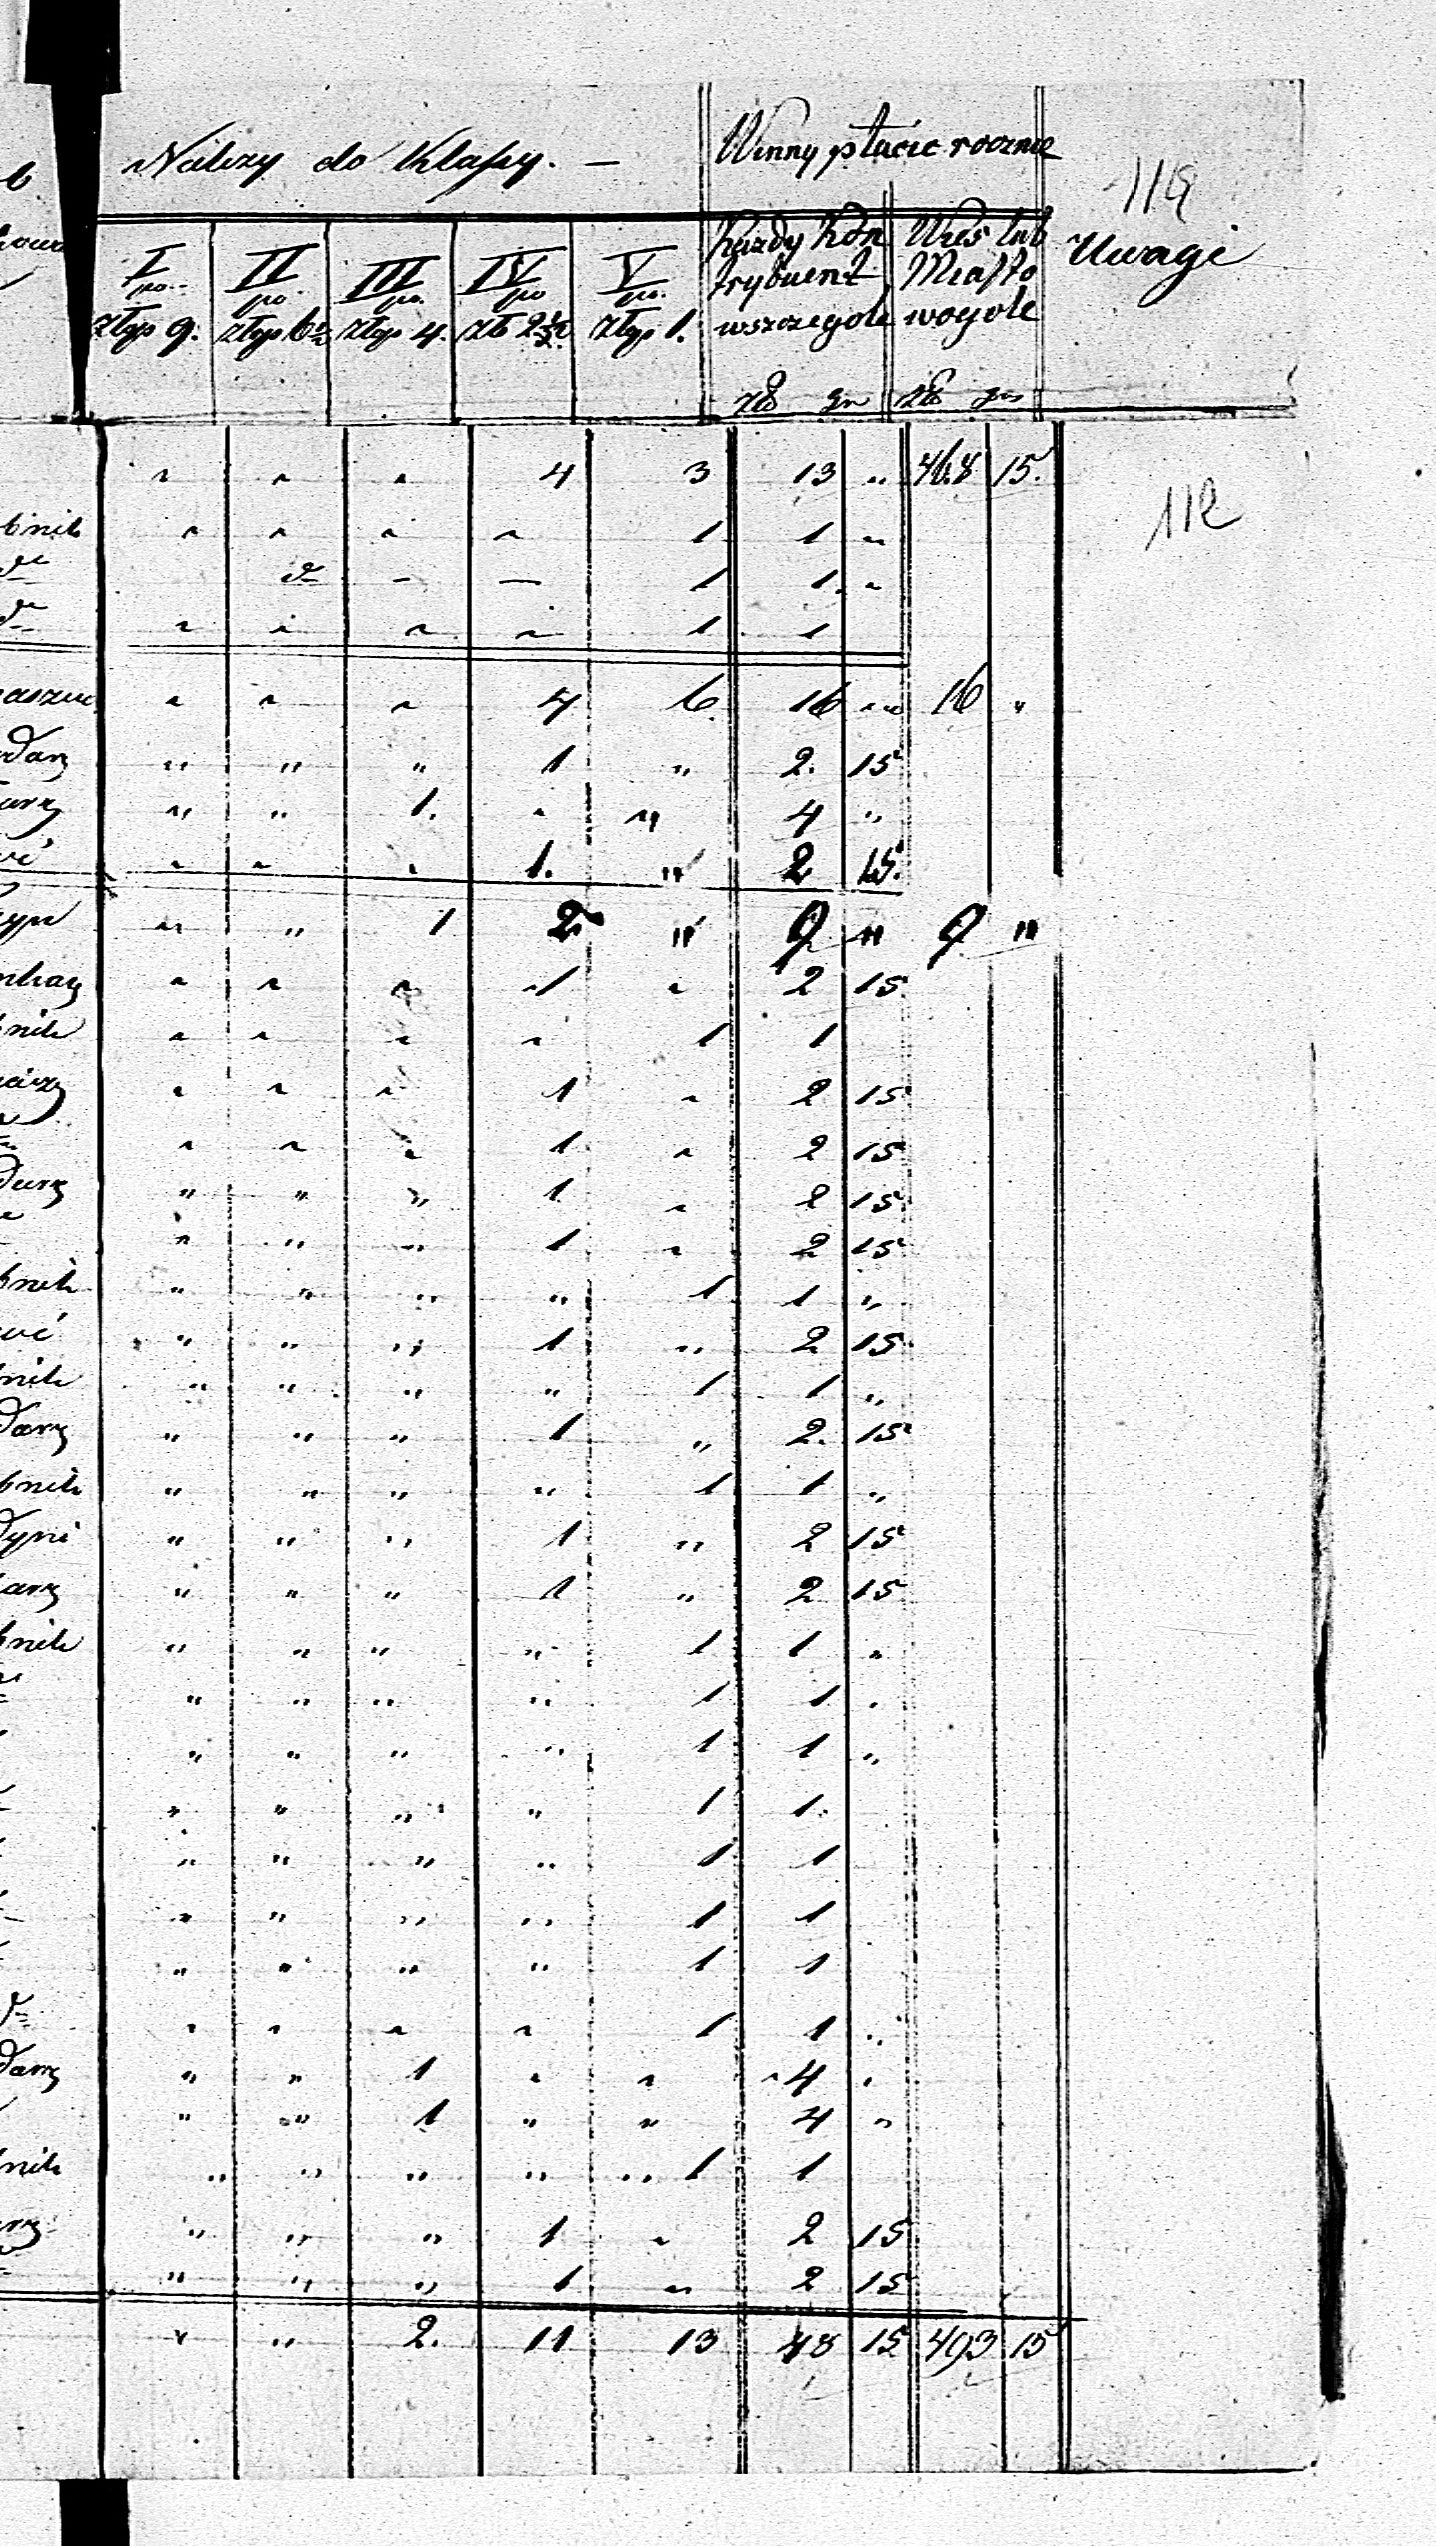 Należy do Klassy. — Winny płacić rocznie
119
I po złtp 9. II po złtp 6 III po złtp 4. IV po zło 2½ V po złtp 1. Każdy Kontrybuent wszczególe Wieś lub Miasto wogóle Uwagi
zło gr zło gr
" " " 4 3 13 " 468 15.
112
bnik " " " " 1 1 "
dto d — — 1 1. "
dto " " " " 1 1
" " " 4 6. 16 " 16 "
darz " " " 1 " 2. 15
arz " " 1. " " 4 "
" " " 1. " 2 15.
" " 1 2 " 9 " 9 "
" " " 1 " 2 15
bnik " " " " 1 1
" " " 1 " 2 15
" " " 1 " 2 15
darz " " " 1 " 2 15.
" " " 1 " 2 15
bnik " " " " 1 1 "
" " " 1 " 2 15
nik " " " " 1 1 "
darz " " " 1 " 2. 15
bnik " " " " 1 1 "
" " " 1 " 2 15
arz " " " 1 " 2 15
bnik " " " " 1 1 "
" " " " 1 1 "
" " " " 1 1 "
" " " " 1 1.
" " " " 1 1
" " " " 1 1
" " " " 1 1
" " " " 1 1 "
darz " " 1 " " 4 "
" " 1 " " 4 "
nik " " " " " 1 1
arz " " " 1 " 2 15
" " " 1 " 2 15
" " 2. 11 13 48 15 493 15